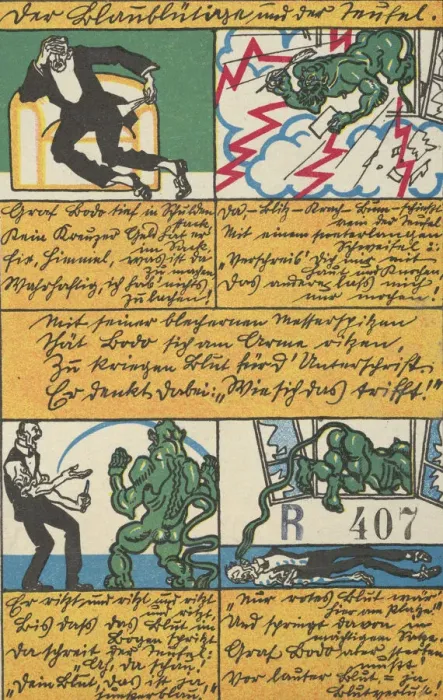 Der Blaublütige und der Teufel.
Graf Bodo tief in Schulden
stack.
Kein Kreuzer Geld hat er
im Sack.
Hin, Himmel, was ist da
zu machen
Wahrhaftig, ich hab' nichts
zu lachen!
Da, - Blitz - Krach - Bum - schießt
der Teufel
Mit einem
Schweifel:
"Verschreib' Dich mir mit
Haut und Knochen
Das andere lass mich
nur machen!
Mit seiner blechernen Messerspitzen
Thät Bodo sich am Arme ritzen,
Zu kriegen Blut für d' Unterschrift.
Er denkt dabei: "Wie sich das trifft!"
Er ritzt und ritzt und ritzt
und ritzt
Bis daß das Blut im
Bogen spritzt
Da schreit der Teufel:
"Ah, da schau!
"Dein Blut, das ist ja
tintenblau."
R 407
"Nur rotes Blut wär'
hier am Platze!"
Und springt davon in
mächtigem Satze.
Graf Bodo aber sterben
mußt!
Vor lauter Blut =
Blutverlust.